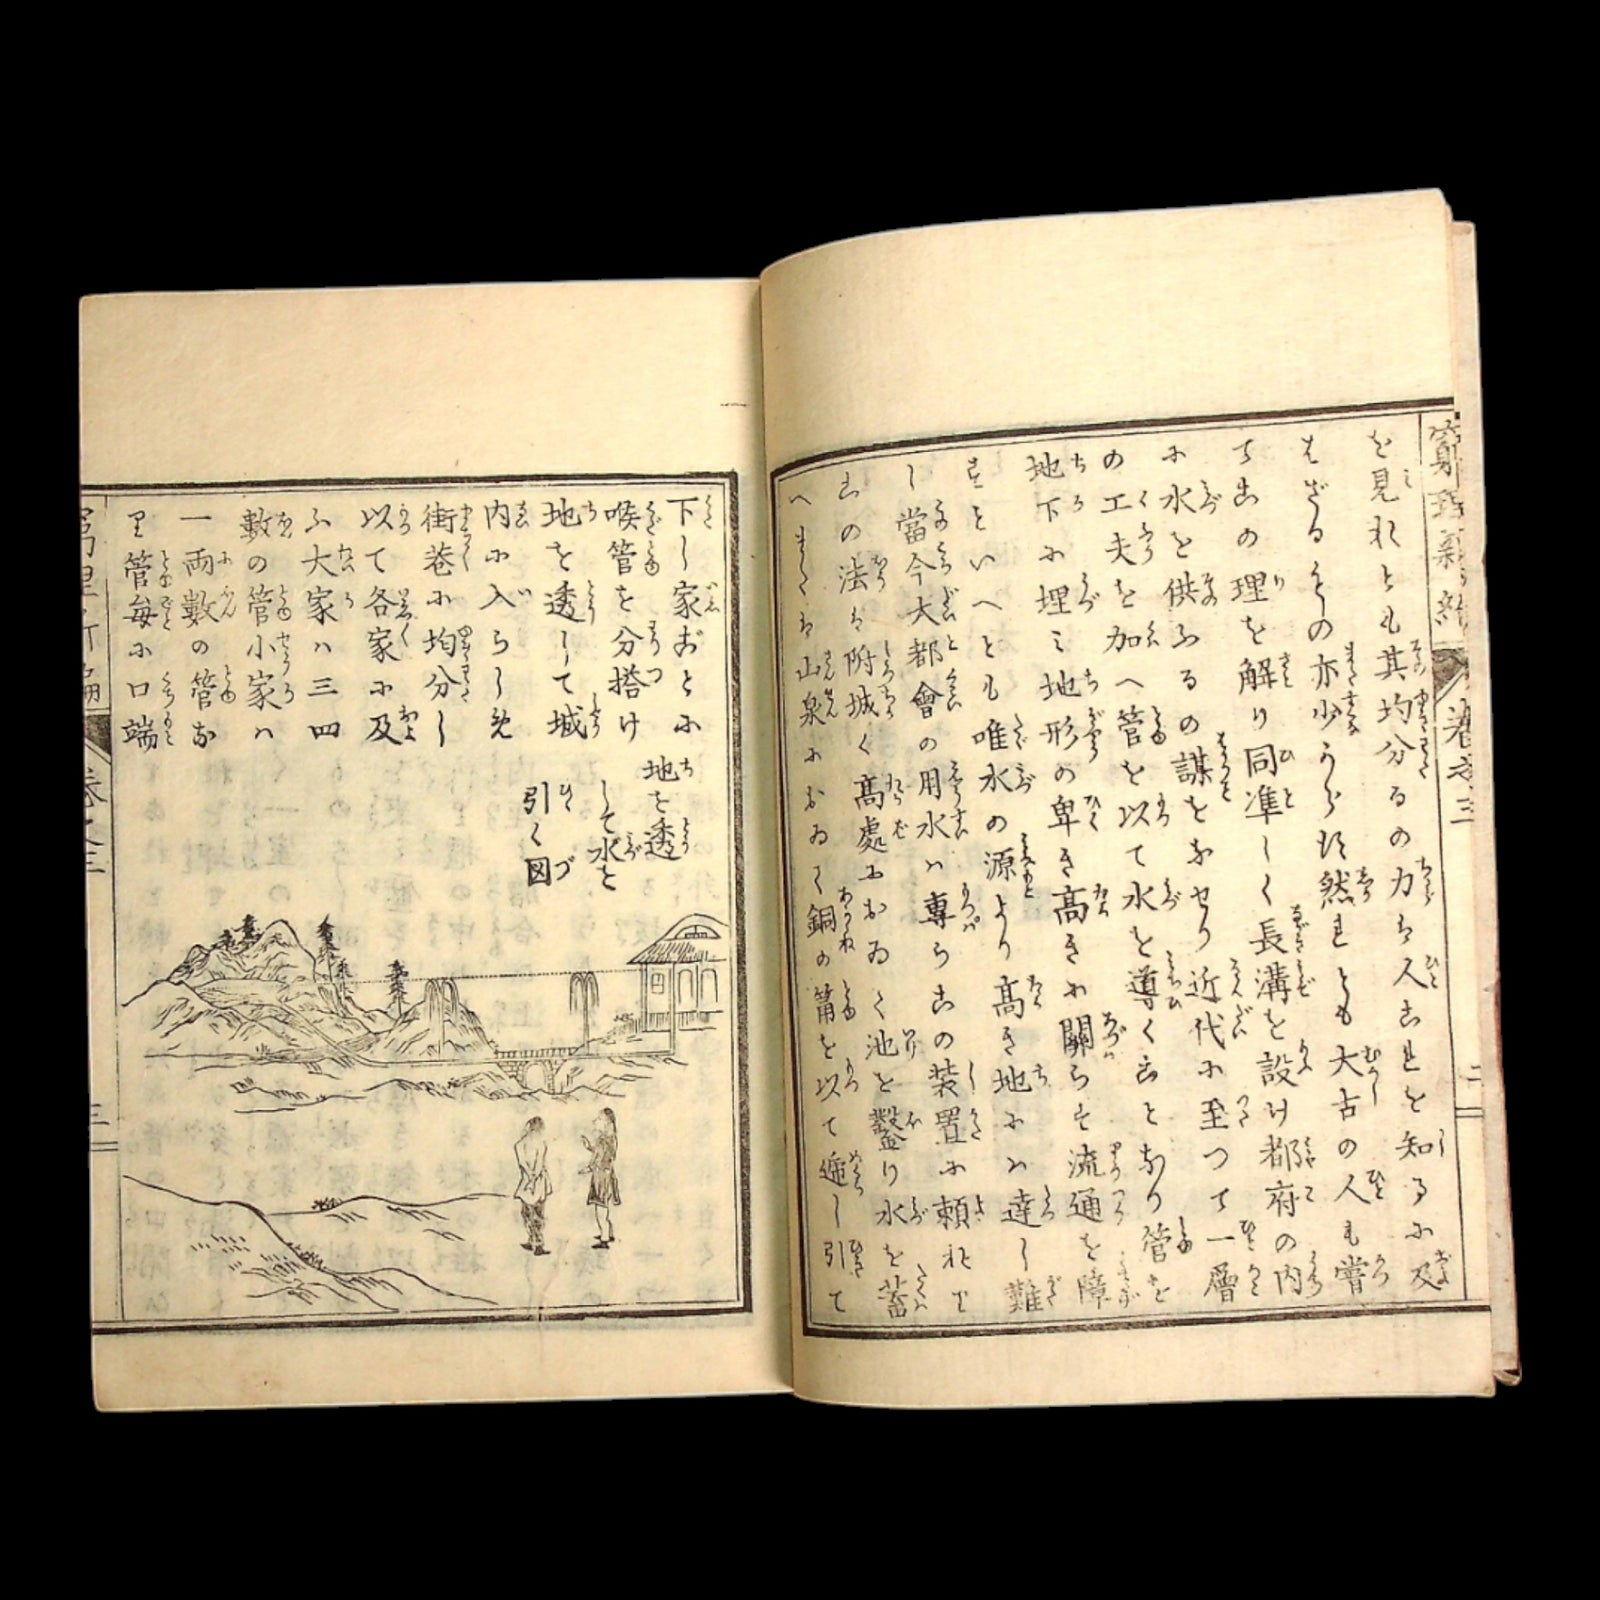 窮理新編 卷之三 二
を見れとも其均分るの力は人これを知るに及
はざるもの亦少からず然れとも大古の人も嘗
てこの理を解り同準しく長溝を設け都府の内
に水を供ふるの謀をなせり近代に至つて一層
の工夫を加へ管を以て水を導くことなり管を
地下に埋ミ地形の卑き高きに關らず流通を障
ずといへとも唯水の源より高き地にハ達し難
し當今大都會の用水ハ專らこの装置に頼れど
この法は附城く高處において池を鑿り水を蓄
へまたは山泉において銅の筩を以て遞し引て
下し家ごとに
喉管を分搭け
地を透して城
内に入らしめ
街巷に均分し
以て各家に及
ふ大家ハ三四
數の管小家ハ
一両數の管な
り管毎に口端
地を透
して水を
引く図
卷之三
三